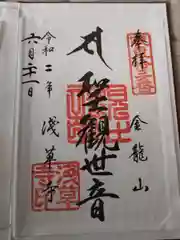 奉拝
金龍山
聖觀世音
令和二年 浅草寺
六月二十一日